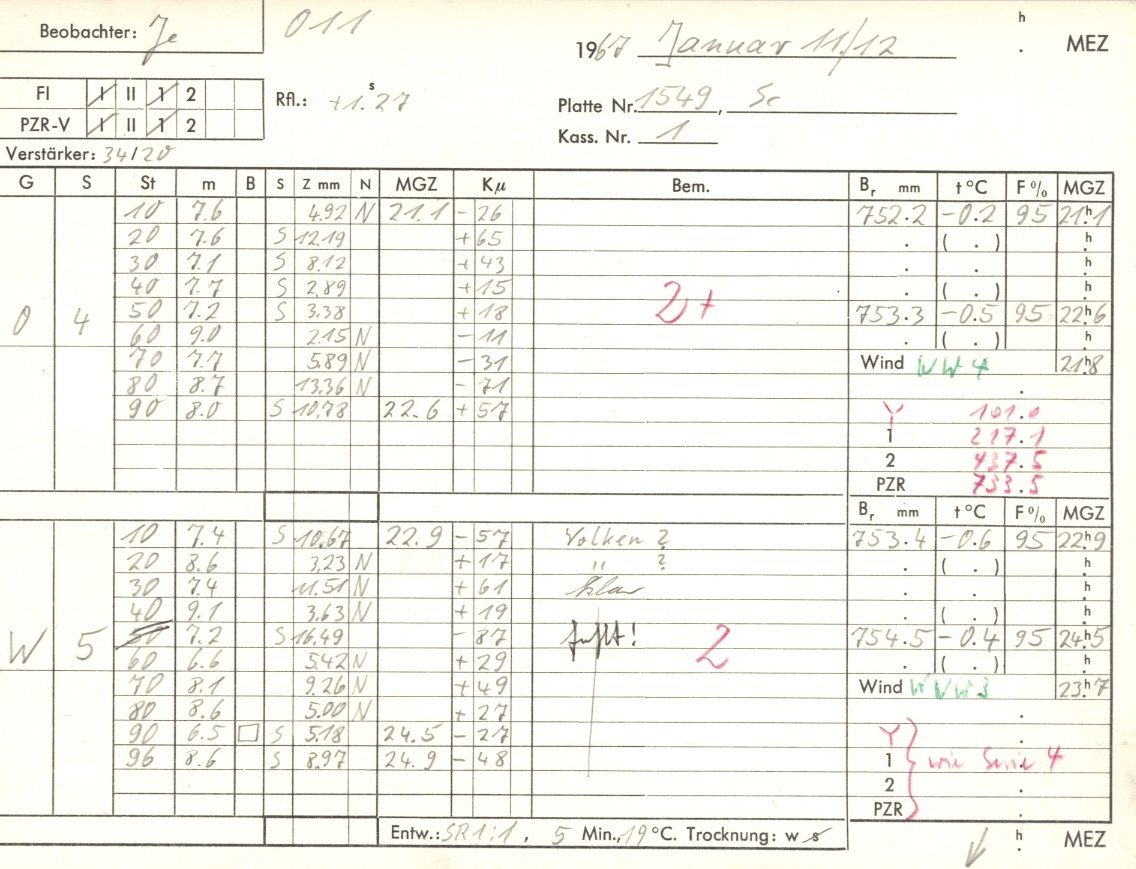 Beobachter: Je 011 1967 Januar 11/12 h . MEZ
FI I II 1 2 Rfl.: +1.27 s Platte Nr. 1549, Sc
PZR-V I II 1 2 Kass. Nr. 1
Verstärker: 34/20
G S St m B S Z mm N MGZ Kµ Bem. Br mm t °C F % MGZ
10 7.6 4.92 N 21.1 - 26 752.2 -0.2 95 21h1
20 7.6 S 12.19 + 65 . ( . ) h
30 7.1 S 8.12 + 43 . . h
40 7.7 S 2.89 + 15 2+ . ( . ) h
O 4 50 7.2 S 3.38 + 18 753.3 -0.5 95 22h6
60 9.0 2.15 N - 11 . ( . ) h
70 7.7 5.89 N - 31 Wind WW 4 21h8
80 8.7 13.36 N - 71 .
90 8.0 S 10.78 22.6 + 57 Y 101.0
1 217.1
2 437.5
PZR 733.5
Br mm t °C F % MGZ
10 7.4 S 10.67 22.9 - 57 Wolken ? 753.4 -0.6 95 22h9
20 8.6 3.23 N + 17 " ? . ( . ) h
30 7.4 11.51 N + 61 klar . . h
40 9.1 3.63 N + 19 . ( . ) h
W 5 50 7.2 S 16.49 - 87 fehlt! 2 754.5 -0.4 95 24h5
60 6.6 5.42 N + 29 . ( . ) h
70 8.1 9.26 N + 49 Wind WNW 3 23h7
80 8.6 5.00 N + 27 .
90 6.5 S 5.18 24.5 - 27 Y .
96 8.6 S 8.97 24.9 - 48 1 wie Serie 4
2 .
PZR .
Entw.: SR 1:1, 5 Min., 19 °C. Trocknung: w s h . MEZ